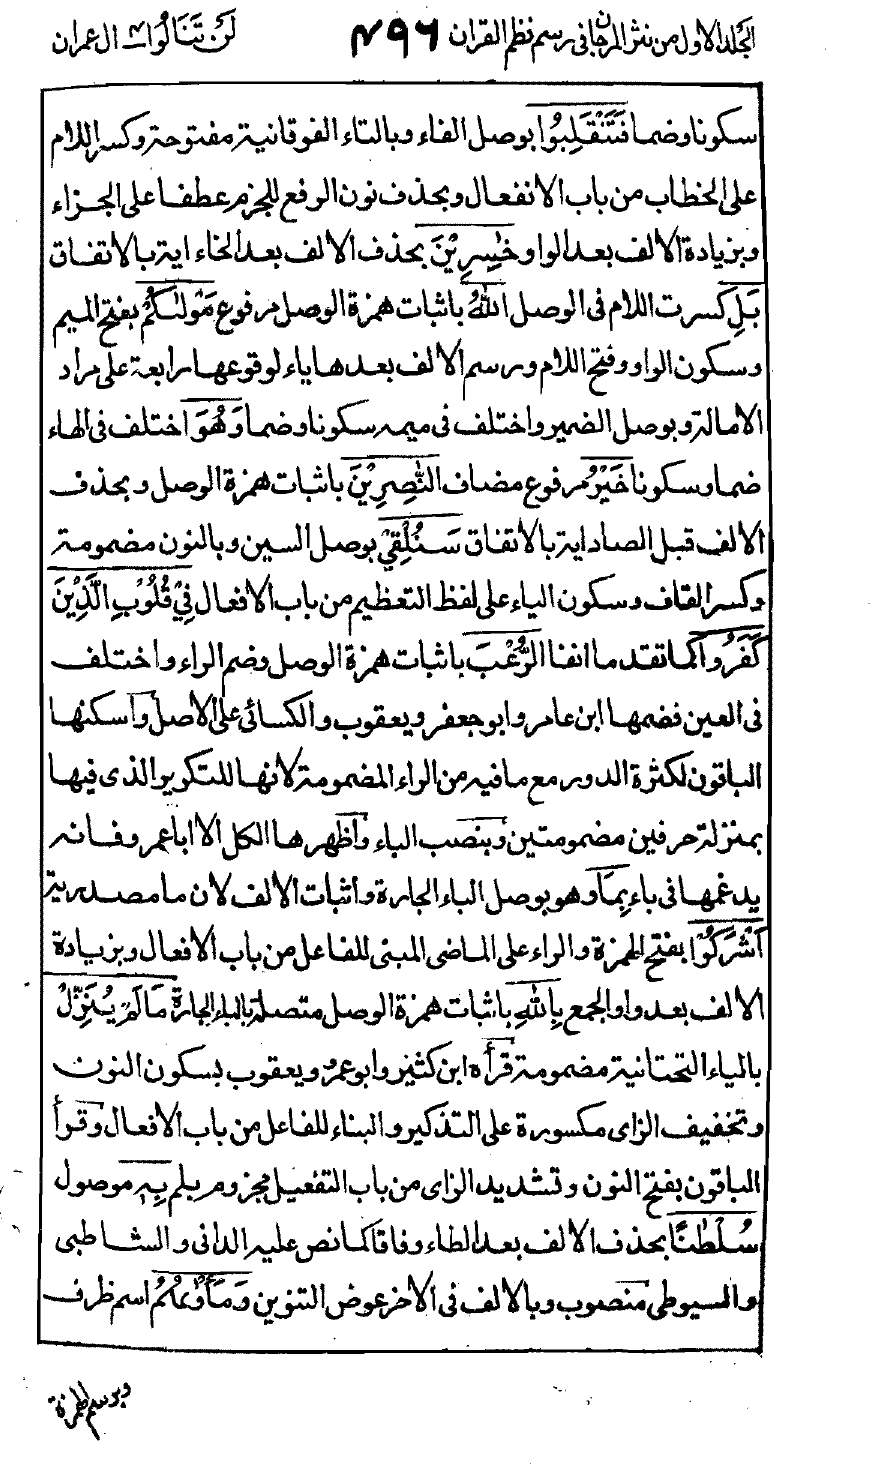 الجلد الاول من نثر المرجان فى رسم نظم القران ٤٩٦ لَنْ تَنَالُوا ٤ ال عمران
سكونا وضما فَتَنْقَلِبُوْا بوصل الفاء وبالتاء الفوقانية مفتوحة وكسر اللام
على الخطاب من باب الانفعال وبحذف نون الرفع للجزم عطفا على الجزاء
وبزيادة الالف بعد الواو خٰسِرِيْنَ بحذف الالف بعد الخاء اية بالاتفاق
بَلِ كسرت اللام فى الوصل اللّٰهُ باثبات همزة الوصل مرفوع مَوْلٰىكُمْ بفتح الميم
وسكون الواو وفتح اللام ورسم الالف بعدها ياء لوقوعها رابعة على مراد
الامالة وبوصل الضمير واختلف فى ميمه سكونا وضما وَهُوَ اختلف فى الهاء
ضما وسكونا خَيْرُ مرفوع مضاف النّٰصِرِيْنَ باثبات همزة الوصل وبحذف
الالف قبل الصاد اية بالاتفاق سَنُلْقِيْ بوصل السين وبالنون مضمومة
وكسر القاف وسكون الياء على لفظ التعظيم من باب الافعال فِيْ قُلُوْبِ الَّذِيْنَ
كَفَرُوا كما تقدم انفا الرُّعْبَ باثبات همزة الوصل وضم الراء واختلف
فى العين فضمها ابن عامر وابو جعفر ويعقوب والكسائى على الاصل واسكنها
الباقون لكثرة الدور مع ما فيه من الراء المضمومة لانها للتكرير الذى فيها
بمنزلة حرفين مضمومتين وبنصب الباء واظهرها الكل الا ابا عمرو فانه
يدغمها فى باء بِمَا وهو بوصل الباء الجارة واثبات الالف لان ما مصدرية
اَشْرَكُوْا بفتح الهمزة والراء على الماضى المبنى للفاعل من باب الافعال وبزيادة
الالف بعد واو الجمع بِاللّٰهِ باثبات همزة الوصل متصلة بالباء الجارة مَا لَمْ يُنَزِّلْ
بالياء التحتانية مضمومة قرأه ابن كثير وابو عمرو ويعقوب بسكون النون
وتخفيف الزاى مكسورة على التذكير والبناء للفاعل من باب الافعال وقرأ
الباقون بفتح النون وتشديد الزاى من باب التفعيل مجزوم بلم بِهٖ موصول
سُلْطٰنًا بحذف الالف بعد الطاء وفاقا كما نص عليه الدانى والشاطبى
والسيوطى منصوب وبالالف فى الاخر عوض التنوين وَمَأْوٰىهُمُ اسم ظرف
وبرسم الهمزة